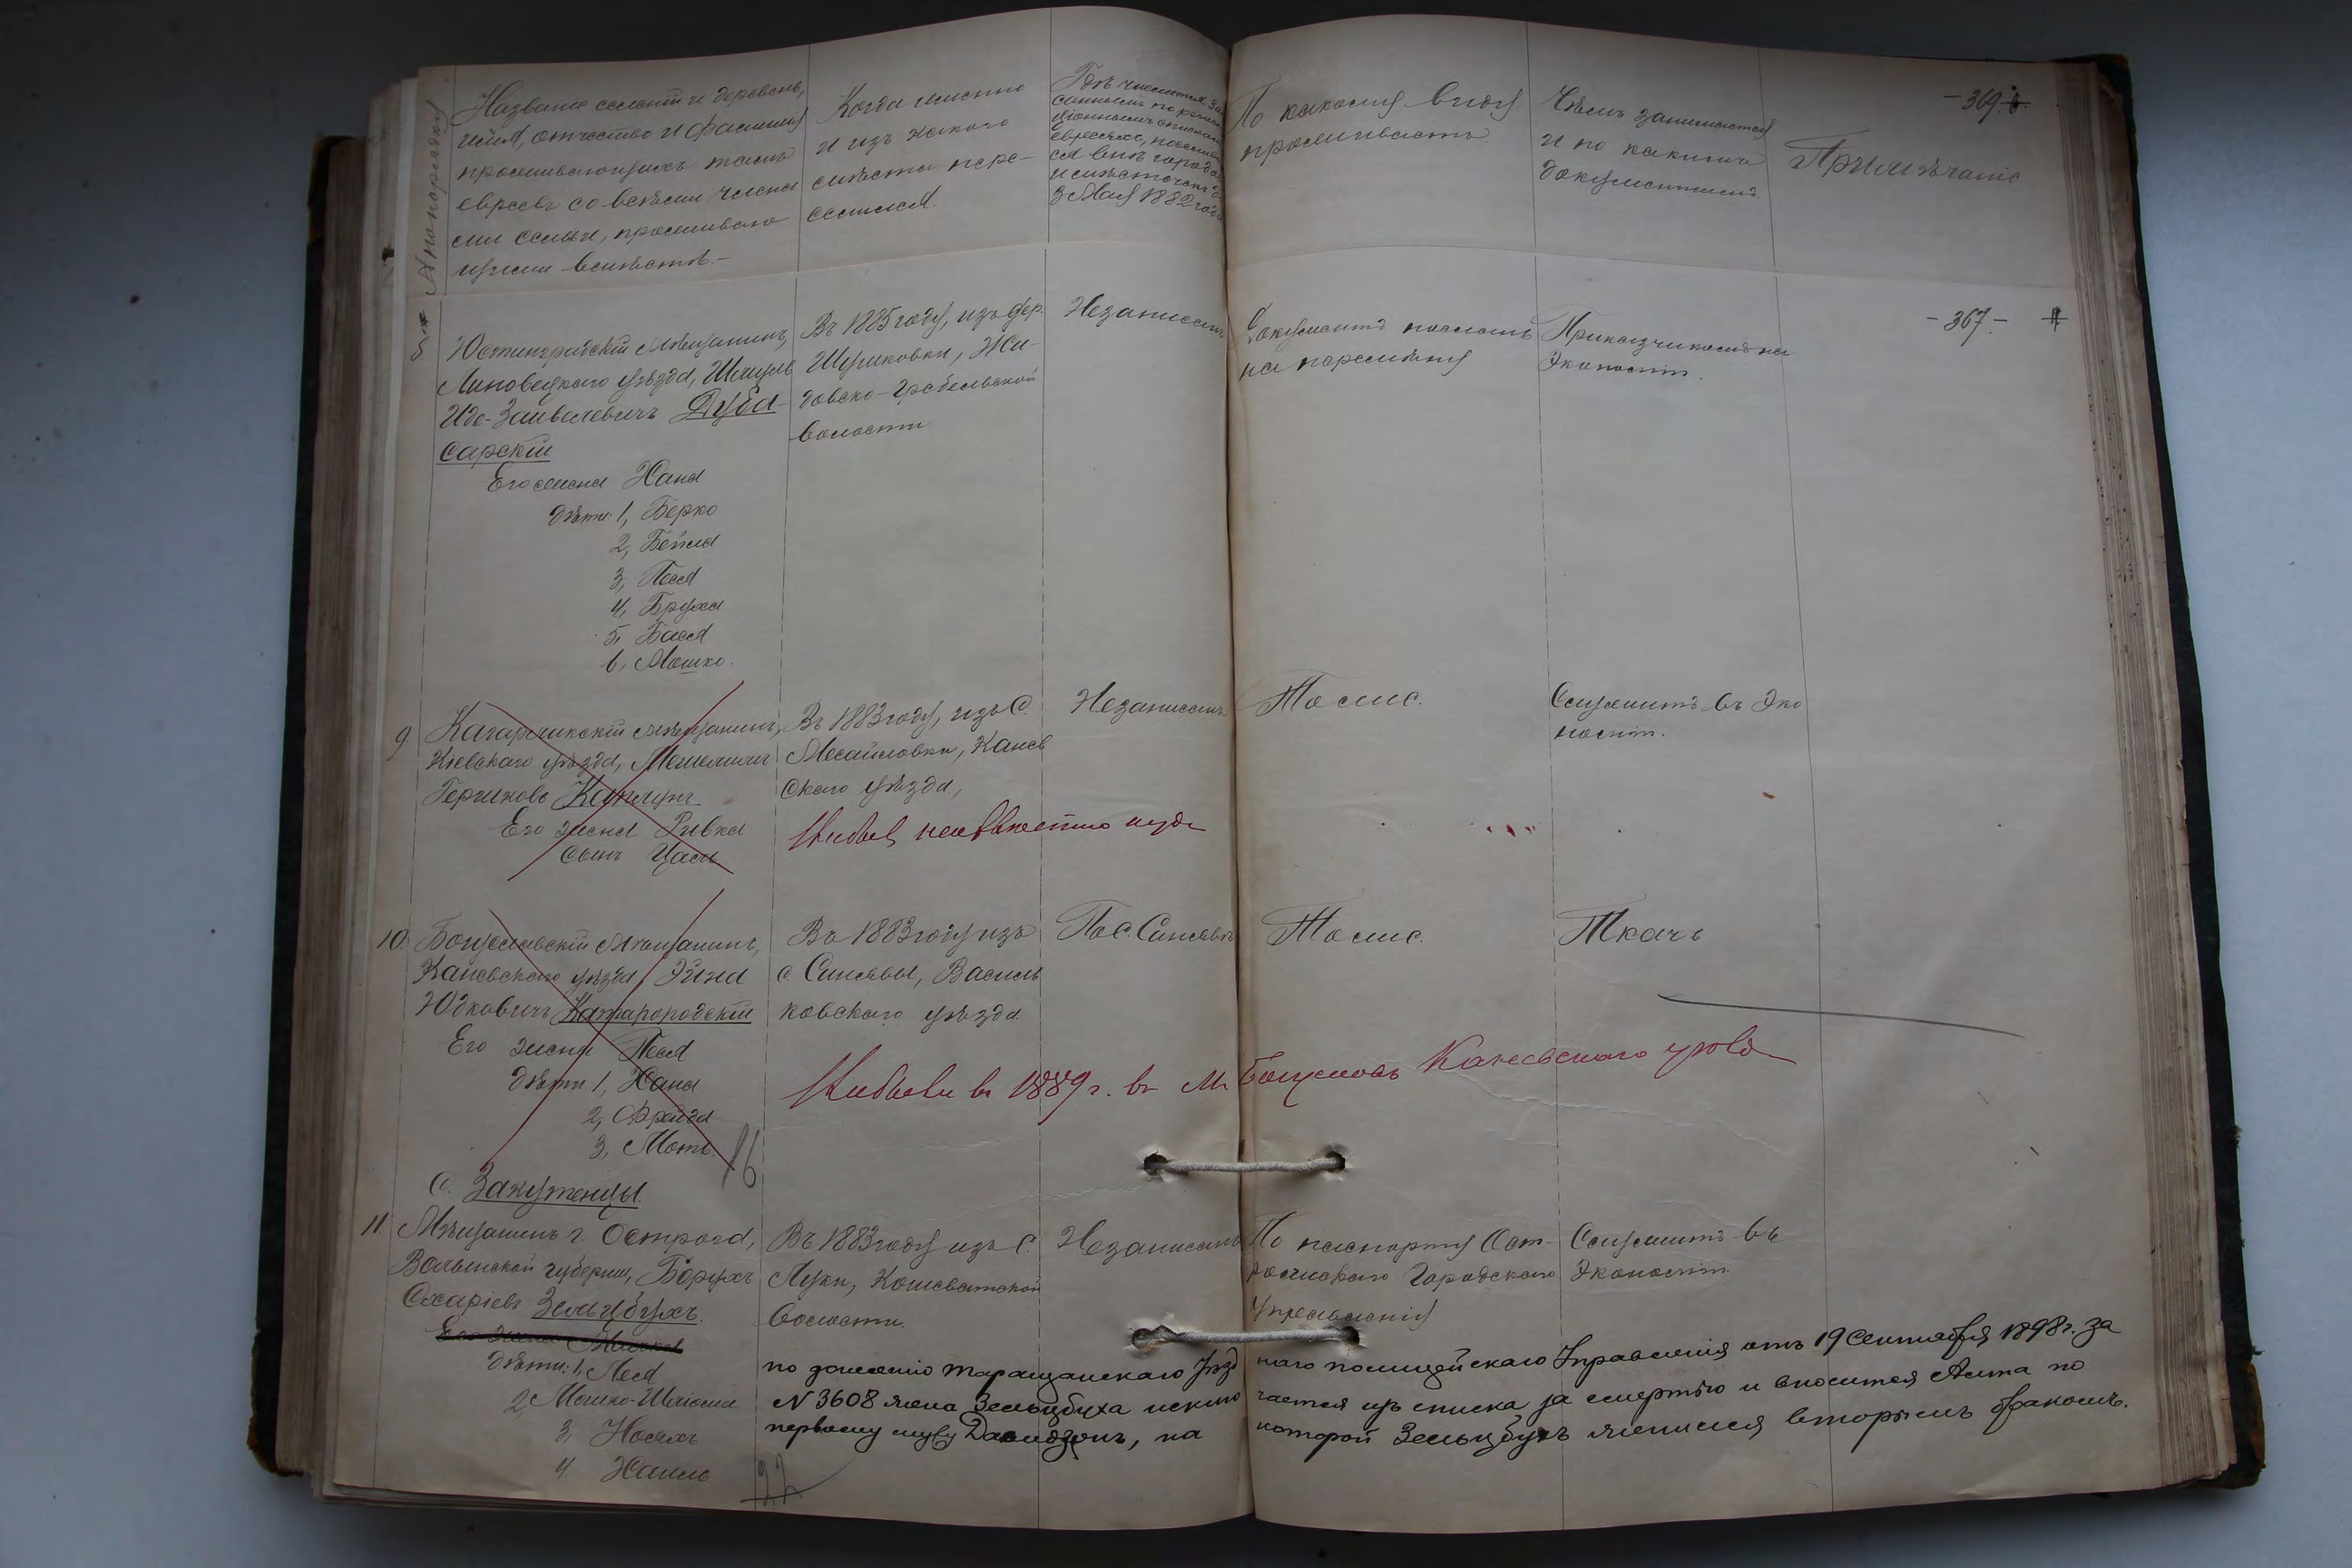 № по порядку
Названіе селеній и деревень,
имя, отчество и фамилія
проживающихъ тамъ
евреевъ со всѣми члена
ми семьи, проживаю
щими вмѣстѣ.-
Когда именно
и изъ какого
мѣста пере-
селился.
Гдѣ числится за
саннымъ по
спискамъ
евреевъ, поселив
ся внѣ городовъ
и мѣстечекъ до
3 Мая 1882 года
По какому виду
проживаетъ
Чѣмъ занимается
и по какимъ
документамъ
Примѣчаніе
- 369.
8
Юстинградскій мѣщанинъ,
Липовецкаго уѣзда, Шмуль
Иде-Зайвелевичъ Дуба-
сарскій
Его жена Хана
Дѣти: 1, Берко
2, Бейла
3, Песя
4, Бруха
5, Бася
6, Мошко.
Въ 1885 году, изъ дер.
Шуриковки, Жи-
довско-Гребельской
волости
Незаписанъ
Документъ посланъ
на перемѣну
Прикащикомъ на
Экономіи.
- 367. -
9
Кагарлыкскій мѣщанинъ,
Кіевскаго уѣзда,
Гершковъ Каплунъ
Его жена Ривка
Сынъ Цаль
Въ 1883 году, изъ С.
Канев
скаго уѣзда,
Выбылъ неизвѣстно куда
Незаписанъ
Тоже.
Служитъ въ Эко
номіи.
10.
Богуславскій мѣщанинъ,
Каневскаго уѣзда,
Юдковичъ Катарородскій
Его жена Песя
Дѣти 1, Хана
2, Фрейда
3, Моть.
16
Въ 1883 году изъ
с. Синявы, Василь
ковскаго уѣзда.
По с. Синявѣ
Тоже.
Ткачъ
Выбыли въ 1889 г. въ м. Богуславъ Каневскаго уѣзда
С. Закутенцы.
11.
Мѣщанинъ г. Острога,
Волынской губерніи, Борухъ
Схаріевъ Зельцбухъ.
Его жена
Дѣти: 1, Лея
2, Мошко-Шліома
3, Носехъ
4 Хаимъ
22
Въ 1883 году изъ С.
Луки, Кошеватской
волости.
Незаписанъ
По паспорту Ост-
рожскаго Городскаго
Управленія
Служитъ въ
Экономіи.
по донесенію Таращанскаго Уѣзд наго полицейскаго Управленія отъ 19 Сентября 1898 г. за
№ 3608 жена Зельцбуха исклю чается изъ списка за смертью и вносится по
первому мужу Давидзонъ, на которой Зельцбухъ женился вторымъ бракомъ.